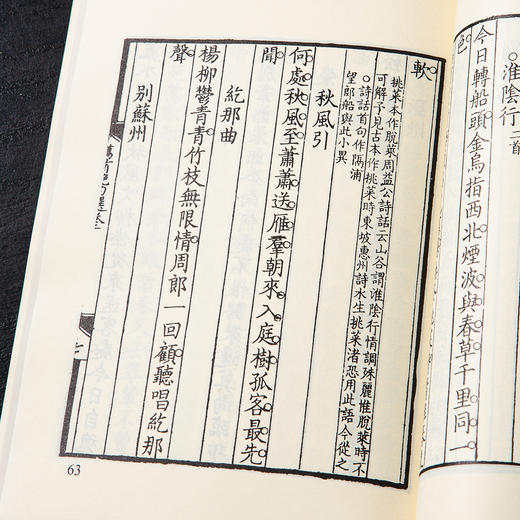 淮陰行二首
今日轉船頭金烏指西北煙波與春草千里同一
色
軟
挑菜本作脫菜周益公詩話云山谷謂淮陰行情調殊麗惟脫菜時不
可解予見古本作挑菜時東坡惠州詩水生挑菜渚恐用此語今從之
○詩話首句作隔浦
望郎船與此小異
秋風引
何處秋風至蕭蕭送雁羣朝來入庭樹孤客最先
聞
紇那曲
楊柳鬱青青竹枝無限情周郎一回顧聽唱紇那
聲
別蘇州
七
63